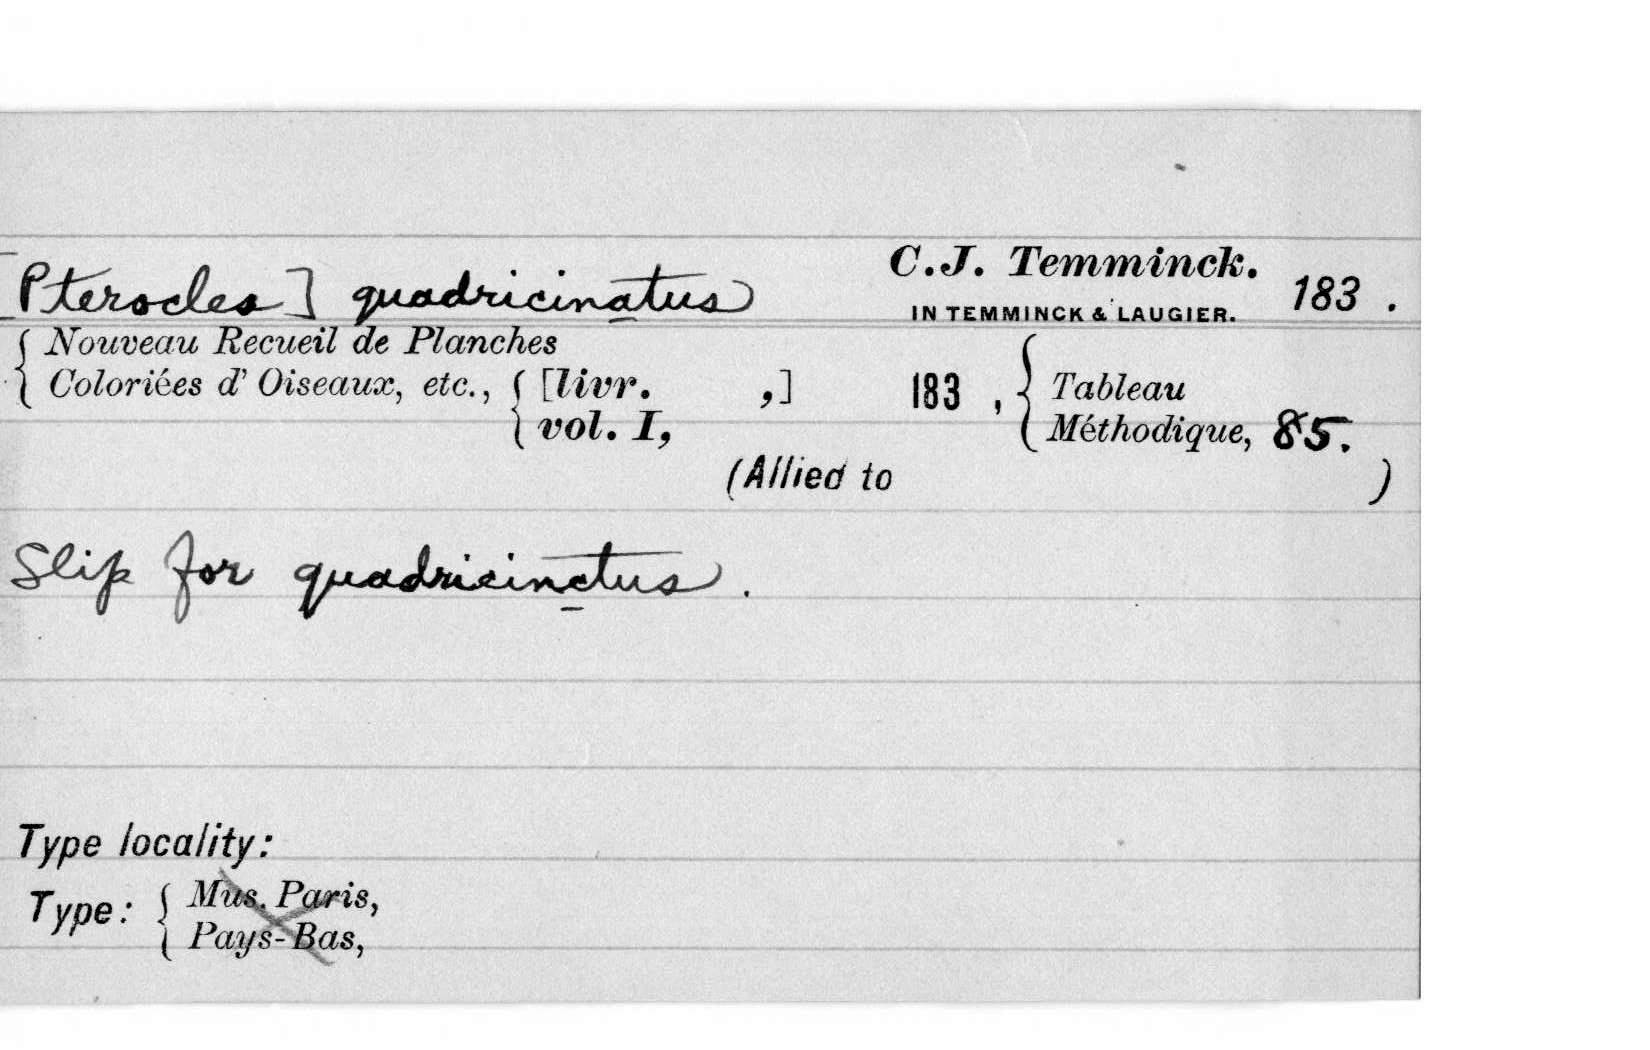 [Pterocles] quadricinatus C.J. Temminck. 183 .
IN TEMMINCK & LAUGIER.
Nouveau Recueil de Planches
Coloriées d' Oiseaux, etc., [livr. ,] 183 , Tableau
vol. I, Méthodique, 85.
(Allied to )
Slip for quadricinctus .
Type locality:
Type: Mus. Paris,
Pays-Bas,